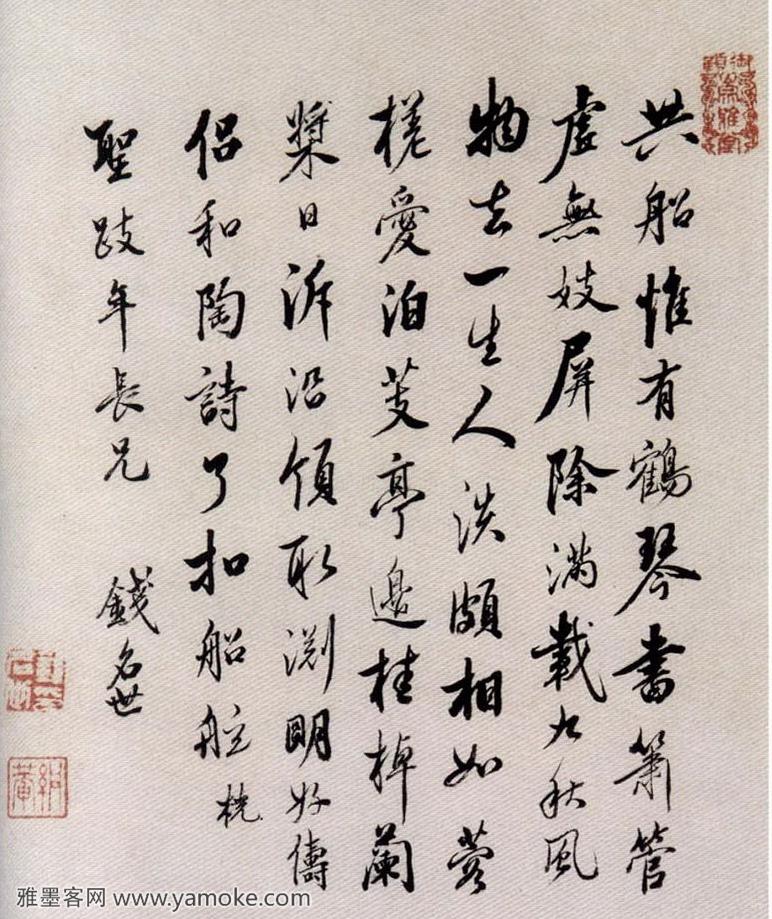 共船惟有鶴琴書簫管
虛無妓屏除滿載九秋風
物去一生人淡頗相如
槎愛泊芰亭邊桂棹蘭
槳日泝沿領取淵明好儔
侶和陶詩了扣船舷
聖跂年長兄
錢名世
雅墨客网 www.yamoke.com